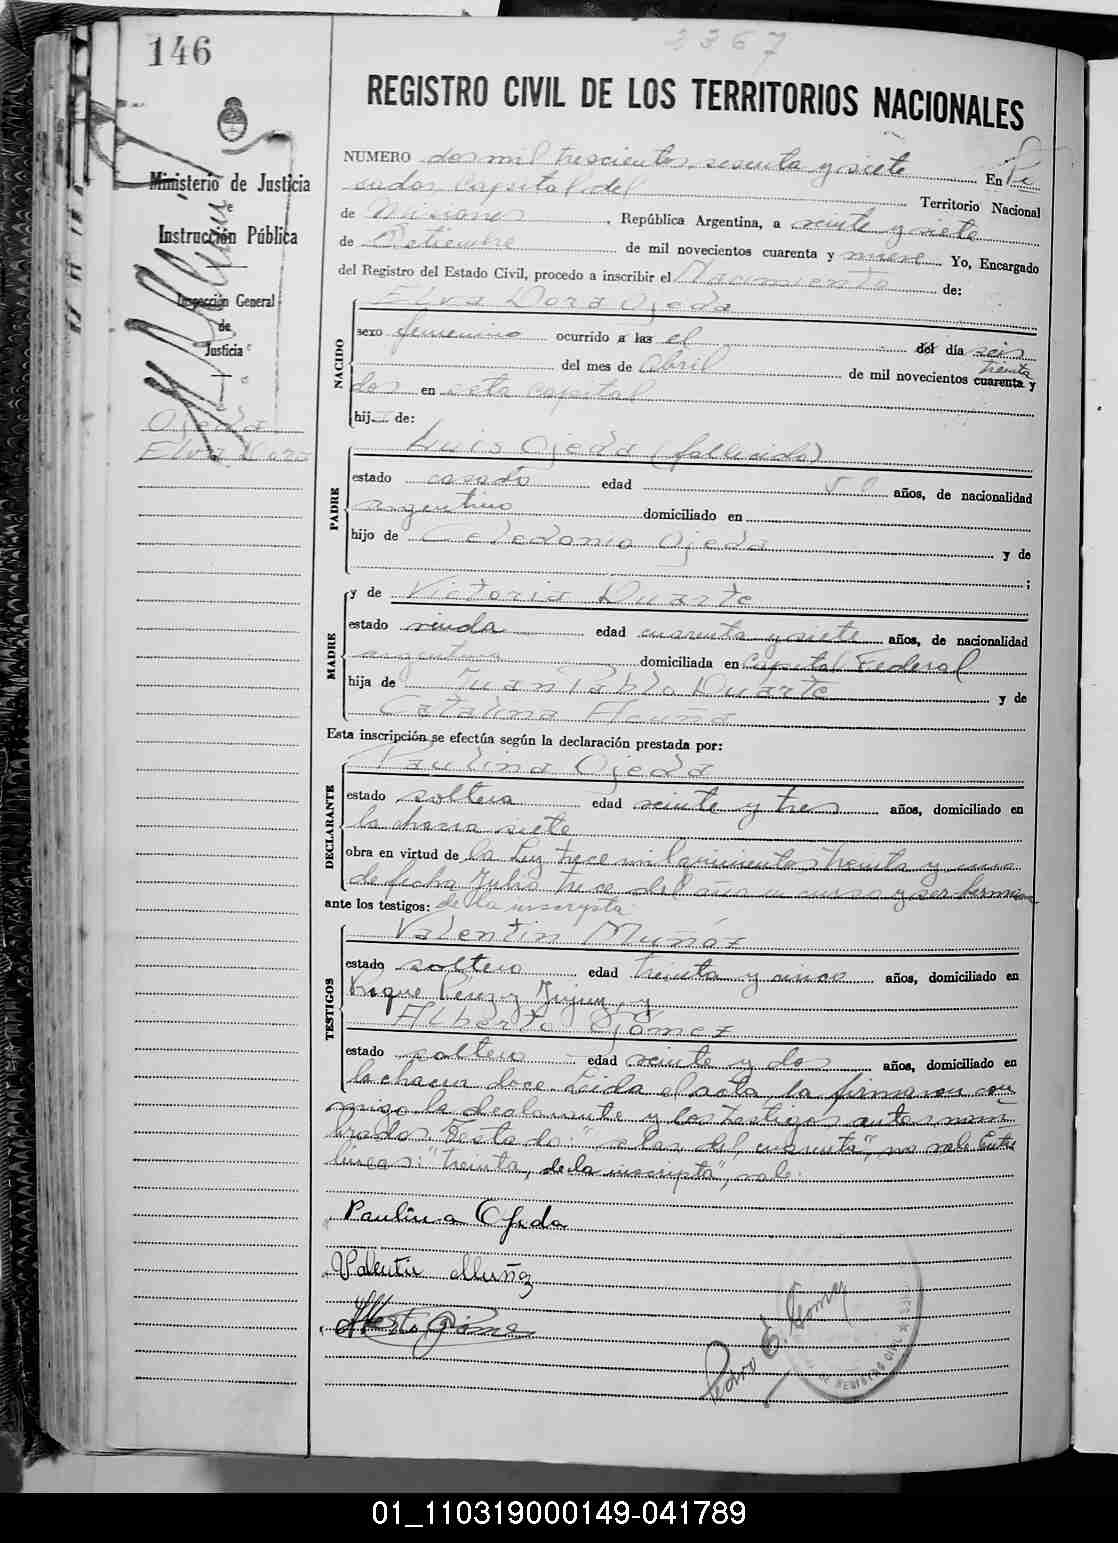 146
2367
REGISTRO CIVIL DE LOS TERRITORIOS NACIONALES
Ministerio de Justicia
e
Instrucción Pública
Inspección General
de
Justicia
Ojeda
Elva Dora
NUMERO dos mil trescientos sesenta y siete En Po
sadas Capital del Territorio Nacional
de Misiones, República Argentina, a veinte y siete
de Setiembre de mil novecientos cuarenta y nueve Yo, Encargado
del Registro del Estado Civil, procedo a inscribir el Nacimiento de:
NACIDO
Elva Dora Ojeda
sexo femenino ocurrido a las el del día seis
del mes de Abril de mil novecientos cuarenta y
treinta
dos en esta capital
hij de:
PADRE
Luis Ojeda (fallecido)
estado casado edad 50 años, de nacionalidad
argentino domiciliado en
hijo de Celedonio Ojeda y de
;
MADRE
y de Victoria Duarte
estado viuda edad cuarenta y siete años, de nacionalidad
argentina domiciliada en Capital Federal
hija de Juan Pablo Duarte y de
Catalina Acuña
Esta inscripción se efectúa según la declaración prestada por:
DECLARANTE
Paulina Ojeda
estado soltera edad veinte y tres años, domiciliado en
la chacra siete
obra en virtud de la Ley trece mil quinientos treinta y uno
de fecha Julio trece del año en curso y ser hermana
ante los testigos: de la inscripta
TESTIGOS
Valentin Muñóz
estado soltero edad treinta y cinco años, domiciliado en
Roque Pérez y Jujuy, y
Alberto Gómez
estado soltero edad veinte y dos años, domiciliado en
la chacra doce. Leida el acta, la firmaron con
migo la declarante y los testigos antes nom
brados. Testado: "a las, del, cuarenta", no vale. Entre
lineas: "treinta, de la inscripta", vale.
Paulina Ojeda
Valentin Muñoz
Alberto Gómez
Pedro E. Gomez
DE REGISTRO CIVIL
01_110319000149-041789